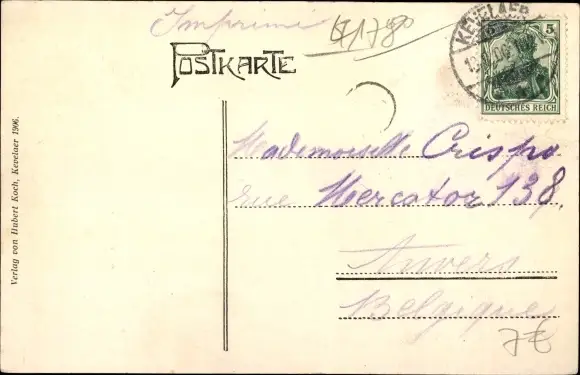 Imprimé
POSTKARTE
KEVELAER
5
DEUTSCHES REICH
Mademoiselle Crispo
rue Mercator 138,
Anvers
Belgique
7€
Verlag von Hubert Koch, Kevelaer 1906.